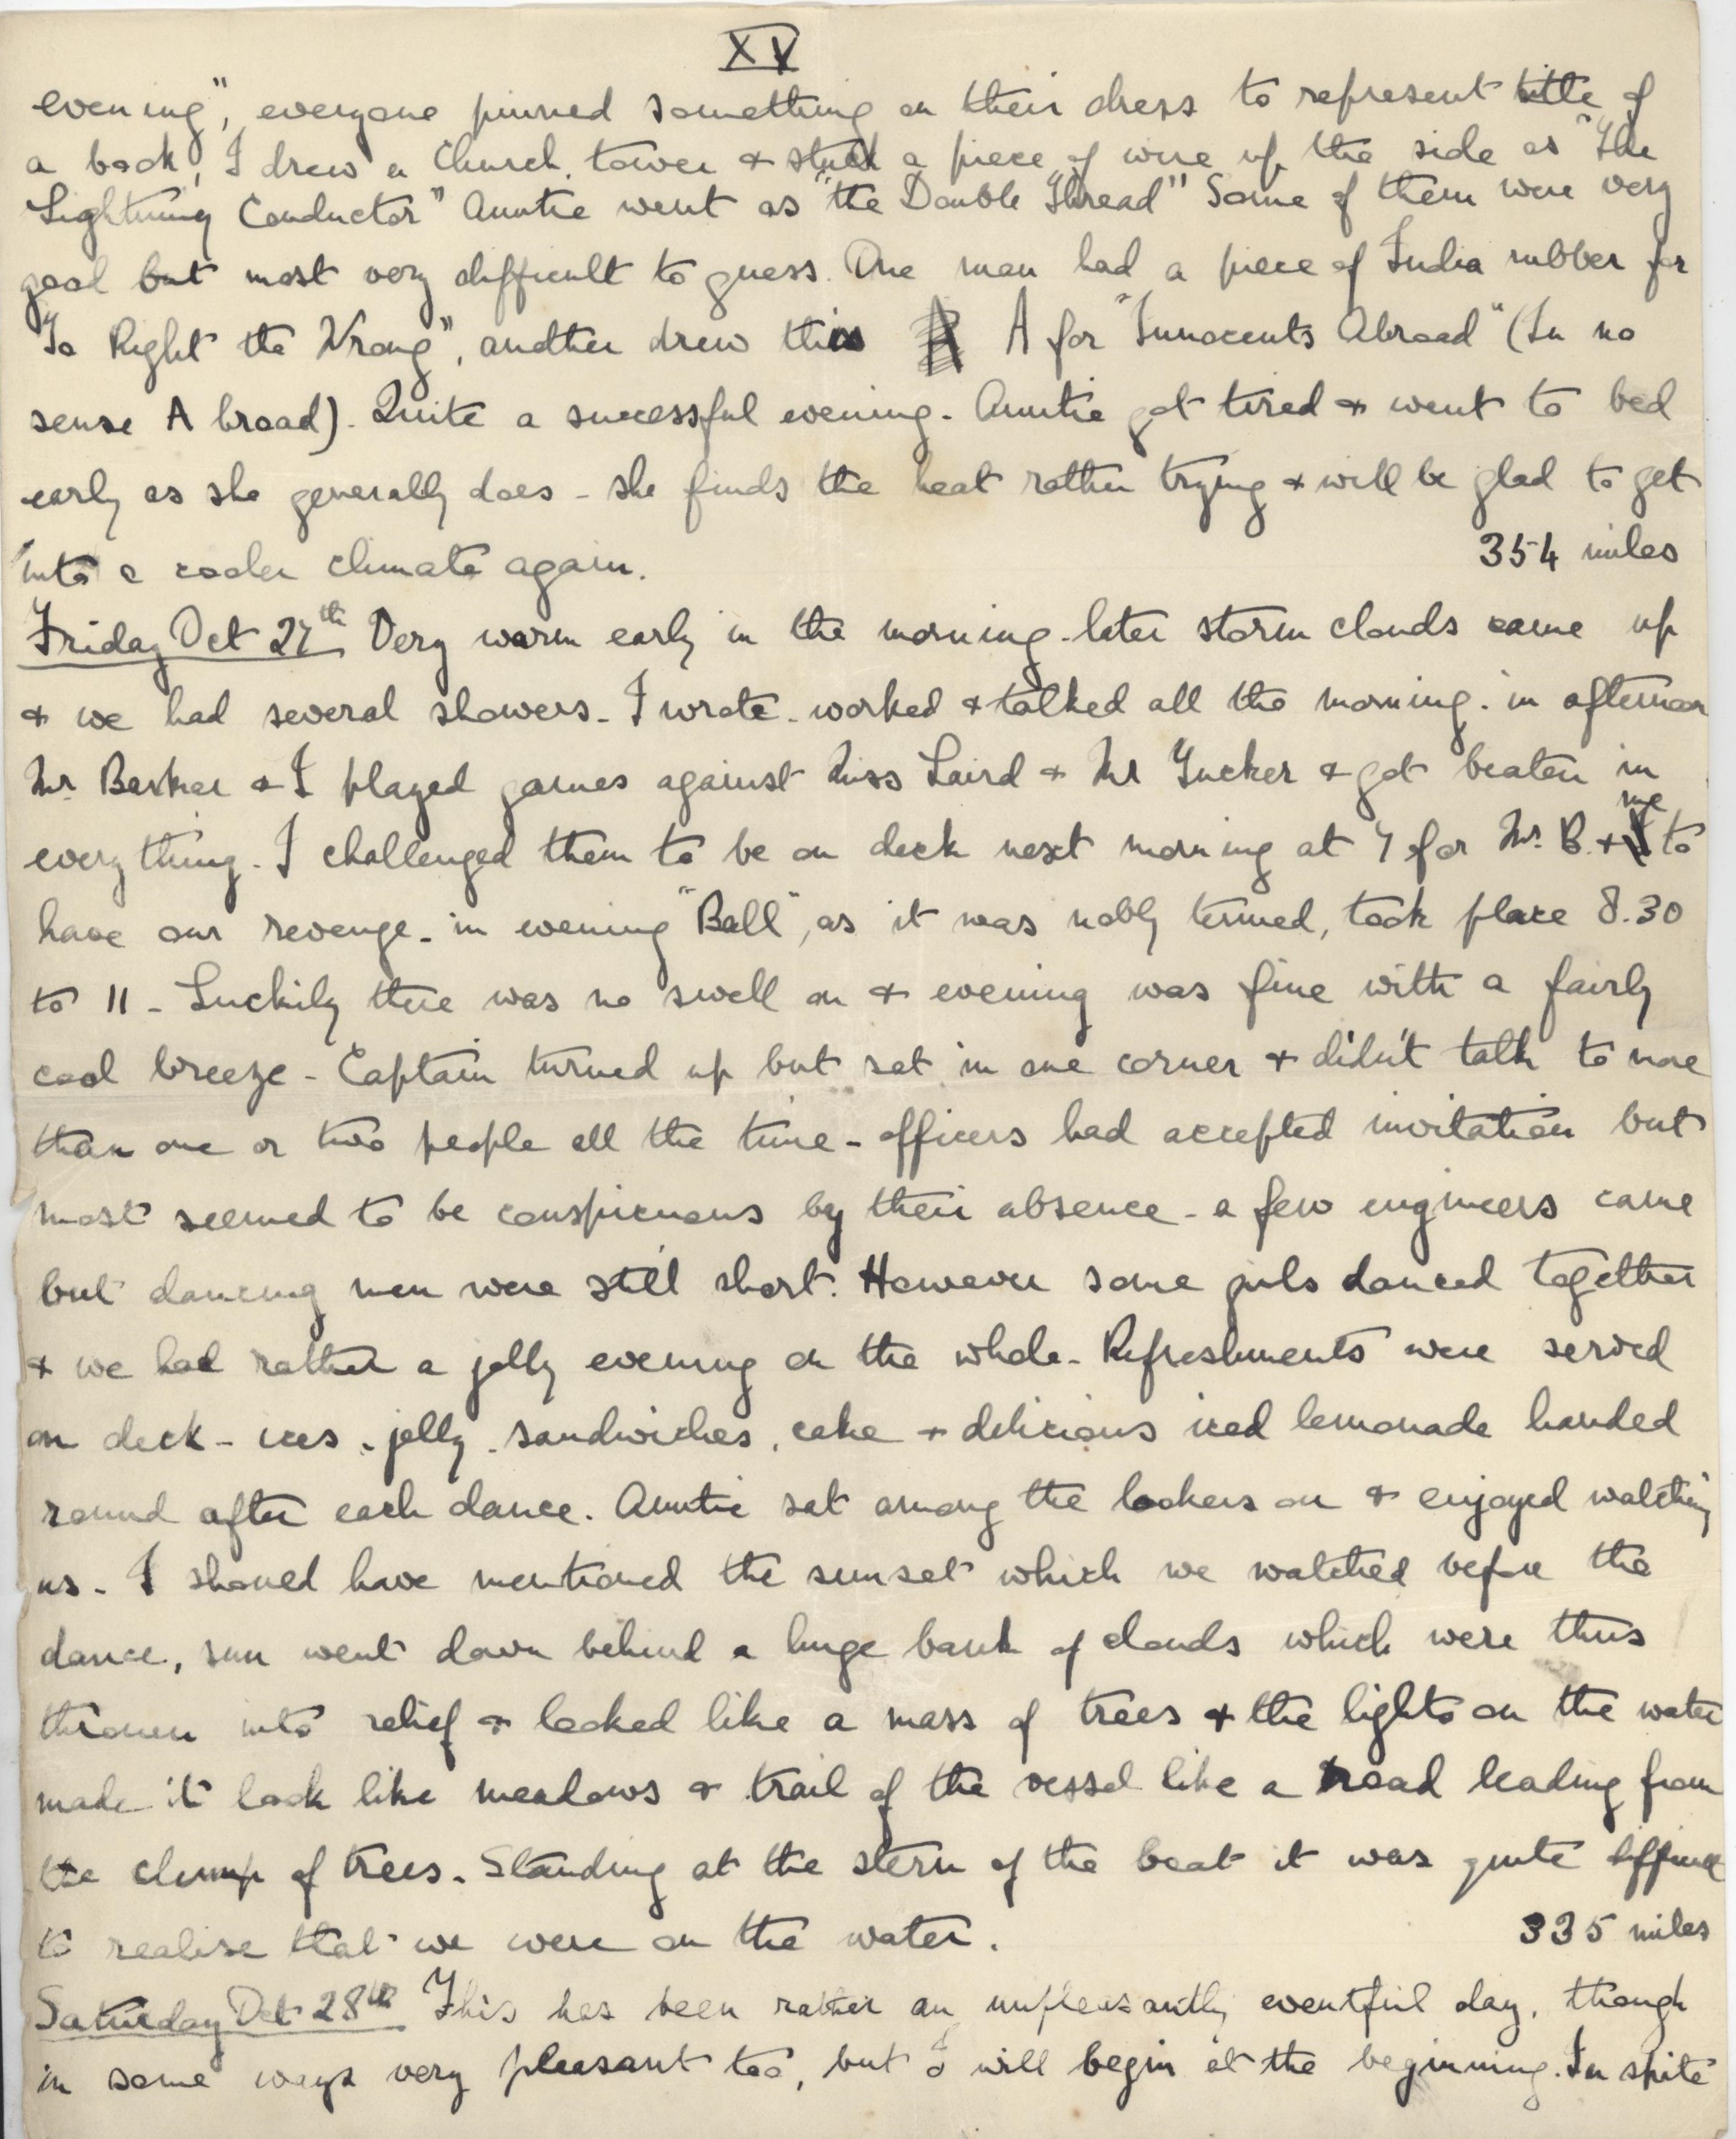 XV
evening", everyone pinned something on their dress to represent title of
a book, I drew a Church tower & stuck a piece of wire up the side as "The
Lightning Conductor" Auntie went as "the Double Thread" Some of them were very
good but most very difficult to guess. One man had a piece of India rubber for
"To Right the Wrong", another drew this A for "Innocents Abroad" (In no
sense A broad). Quite a successful evening. Auntie got tired & went to bed
early as she generally does - she finds the heat rather trying & will be glad to get
into a cooler climate again. 354 miles
Friday Oct 27th Very warm early in the morning - later storm clouds came up
& we had several showers - I wrote - worked & talked all the morning. in afternoon
Mr Barker & I played games against Miss Laird & Mr Tucker & got beaten in
everything. I challenged them to be on deck next morning at 7 for Mr. B. & me to
have our revenge - in evening "Ball", as it was nobly termed, took place 8.30
to 11 - Luckily there was no swell on & evening was fine with a fairly
cool breeze - Captain turned up but sat in one corner & didn't talk to more
than one or two people all the time - officers had accepted invitation but
most seemed to be conspicuous by their absence - a few engineers came
but dancing men were still short. However some girls danced together
& we had rather a jolly evening on the whole - Refreshments were served
on deck - ices, jelly, sandwiches, cake & delicious iced lemonade handed
round after each dance. Auntie sat among the lookers on & enjoyed watching
us - I should have mentioned the sunset which we watched before the
dance, sun went down behind a huge bank of clouds which were thus
thrown into relief & looked like a mass of trees & the lights on the water
made it look like meadows & trail of the vessel like a road leading from
the clump of trees. Standing at the stern of the boat it was quite difficult
to realise that we were on the water. 335 miles
Saturday Oct 28th This has been rather an unpleasantly eventful day, though
in some ways very pleasant too, but I will begin at the beginning. In spite